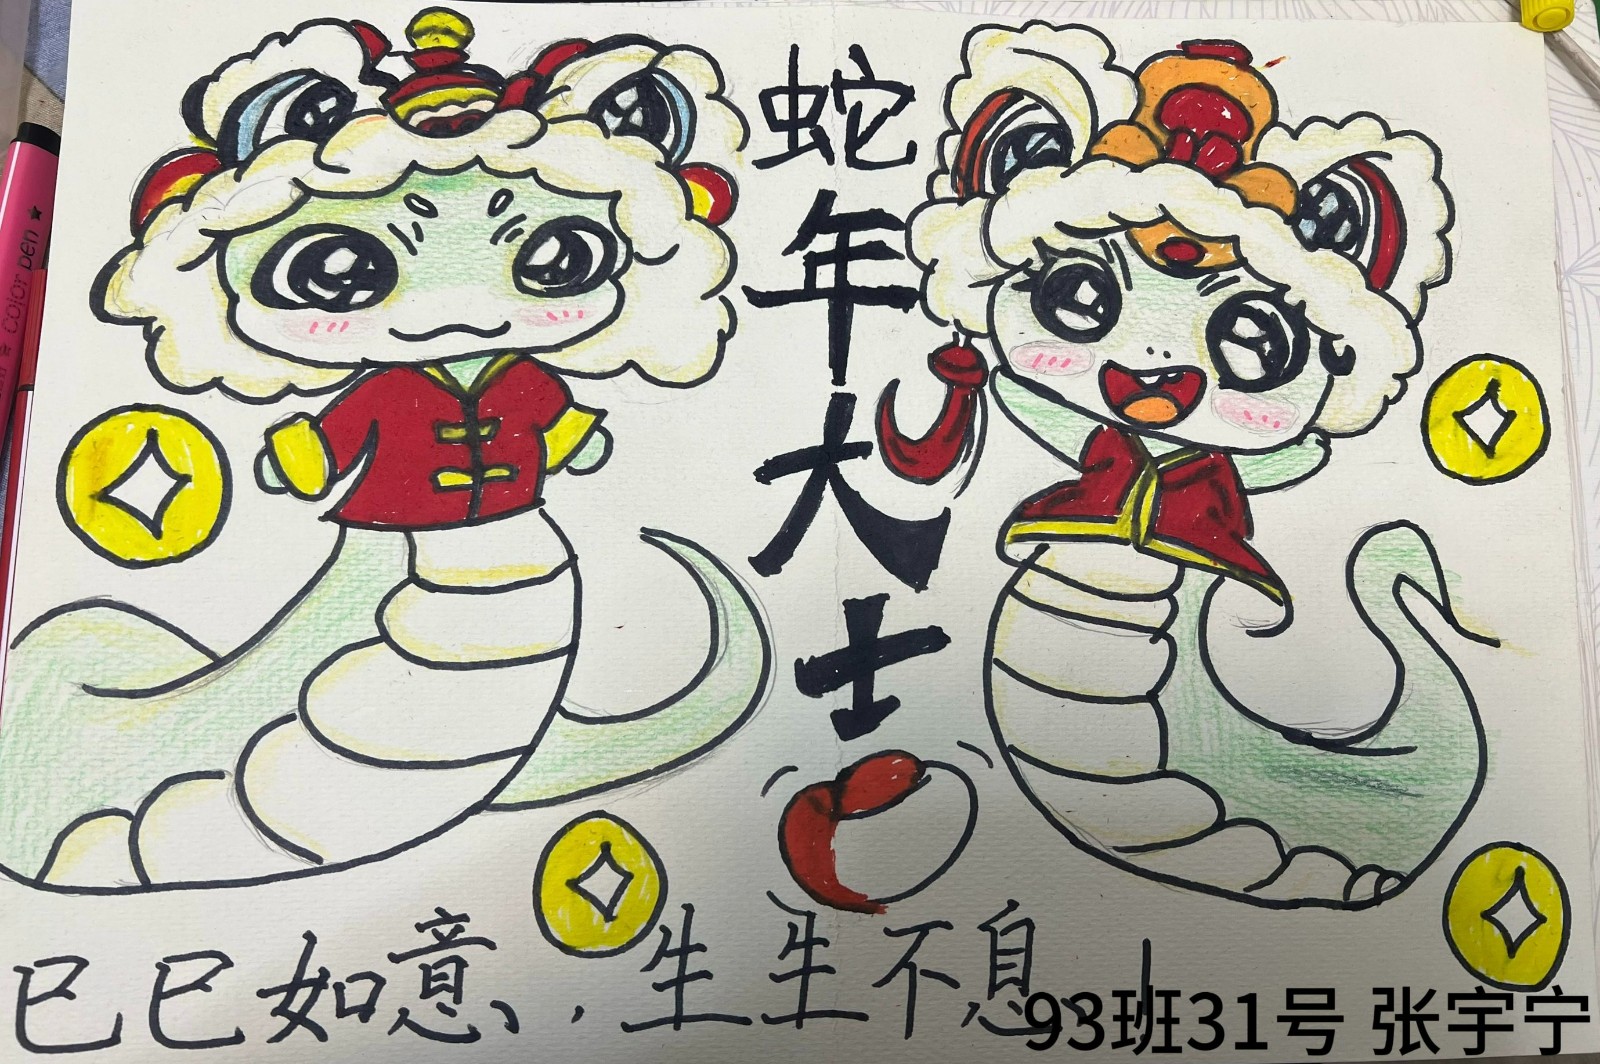 蛇年大吉
巳巳如意，生生不息！
93班31号 张宇宁
color pen